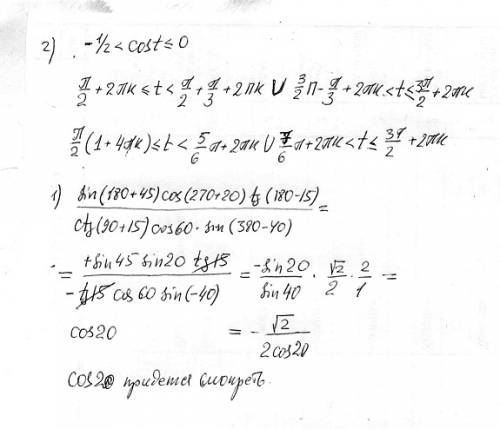 2) -1/2 < cost ≤ 0
π/2 + 2πk ≤ t < π/2 + π/3 + 2πk ∪ 3/2 π - π/3 + 2πk < t ≤ 3π/2 + 2πk
π/2 (1 + 4πk) ≤ t < 5/6 π + 2πk ∪ 7/6 π + 2πk < t ≤ 3π/2 + 2πk
1) sin(180+45) cos(270+20) tg(180-15) / ctg(90+15) cos60 · sin(380-40) =
= +sin45 sin20 tg15 / -tg15 cos60 sin(-40) = -sin20 / sin40 · √2 / 2 · 2 / 1 =
cos20 = - √2 / 2cos20
cos20 придется смотреть.